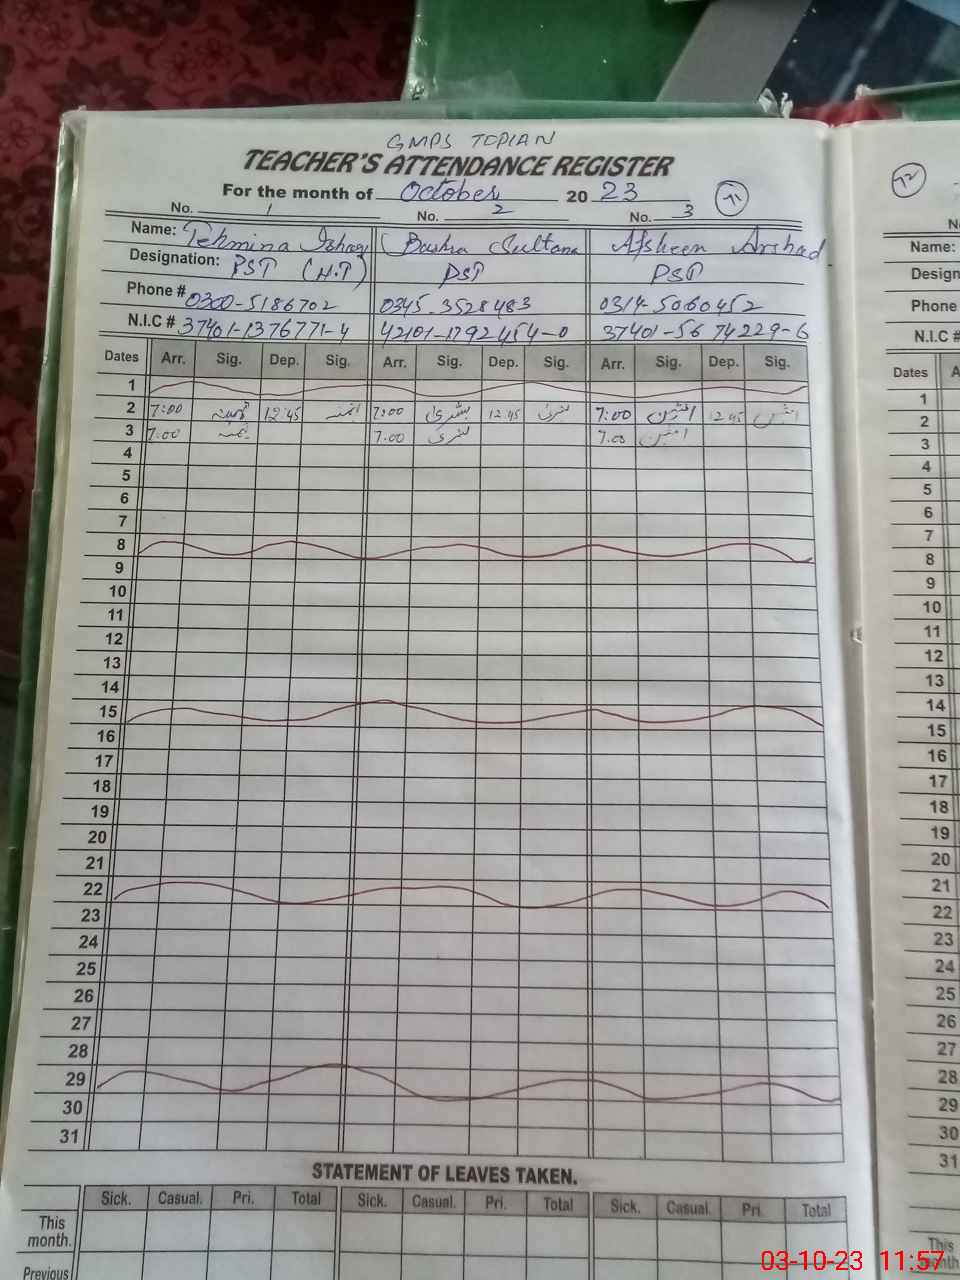 GMPS TOPIAN
TEACHER'S ATTENDANCE REGISTER
For the month of October 20 23 71
No. 1 No. 2 No. 3
Name: Tehmina Ishaq Bushra Sultana Afsheen Arshad
Designation: PST (H.T) PST PST
Phone # 0300-5186702 0345-3528483 0314-5060452
N.I.C # 37401-1376771-4 42101-1792454-0 37401-5674229-6
Dates Arr. Sig. Dep. Sig. Arr. Sig. Dep. Sig. Arr. Sig. Dep. Sig.
1
2 7:00 12:45 7:00 بشریٰ 12:45 7:00 افشین 12:45
3 7:00 7.00 7.00
4
5
6
7
8
9
10
11
12
13
14
15
16
17
18
19
20
21
22
23
24
25
26
27
28
29
30
31
STATEMENT OF LEAVES TAKEN.
Sick. Casual. Pri. Total Sick. Casual. Pri. Total Sick. Casual. Pri. Total
This month.
Previous
72
Name:
Phone
N.I.C #
Dates
1
2
3
4
5
6
7
8
9
10
11
12
13
14
15
16
17
18
19
20
21
22
23
24
25
26
27
28
29
30
31
This
03-10-23 11:57